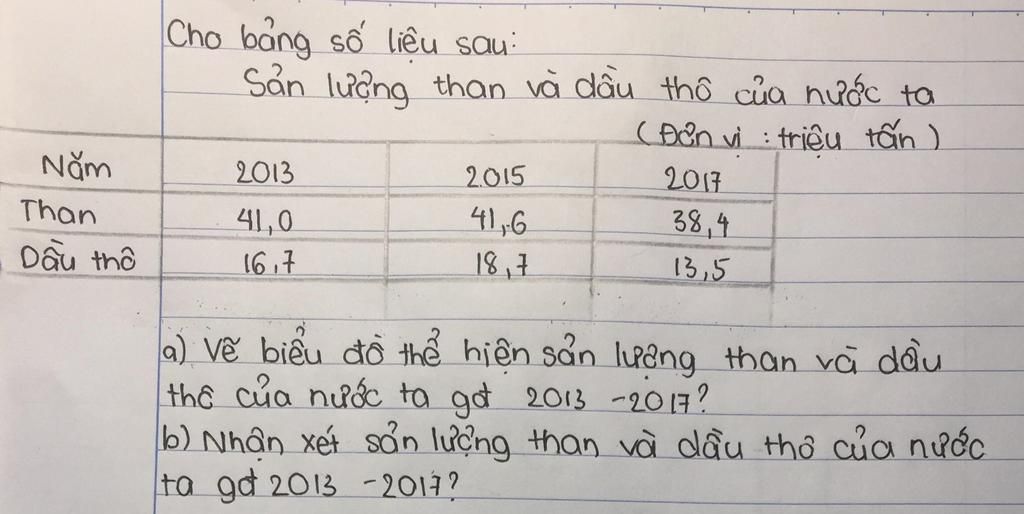 Cho bảng số liệu sau:
Sản lượng than và dầu thô của nước ta
(Đơn vị : triệu tấn)
Năm 2013 2015 2017
Than 41,0 41,6 38,4
Dầu thô 16,7 18,7 13,5
a) Vẽ biểu đồ thể hiện sản lượng than và dầu
thô của nước ta gđ 2013 - 2017?
b) Nhận xét sản lượng than và dầu thô của nước
ta gđ 2013 - 2017?